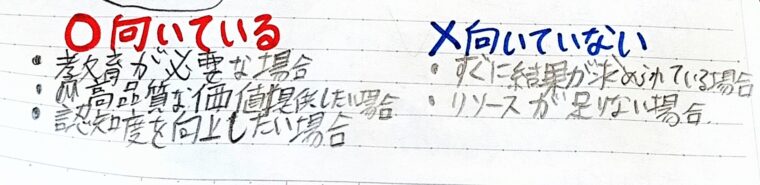 ○向いている
・教育が必要な場合
・高品質な価値提供したい場合
・認知度を向上したい場合
×向いていない
・すぐに結果が求められている場合
・リソースが足りない場合